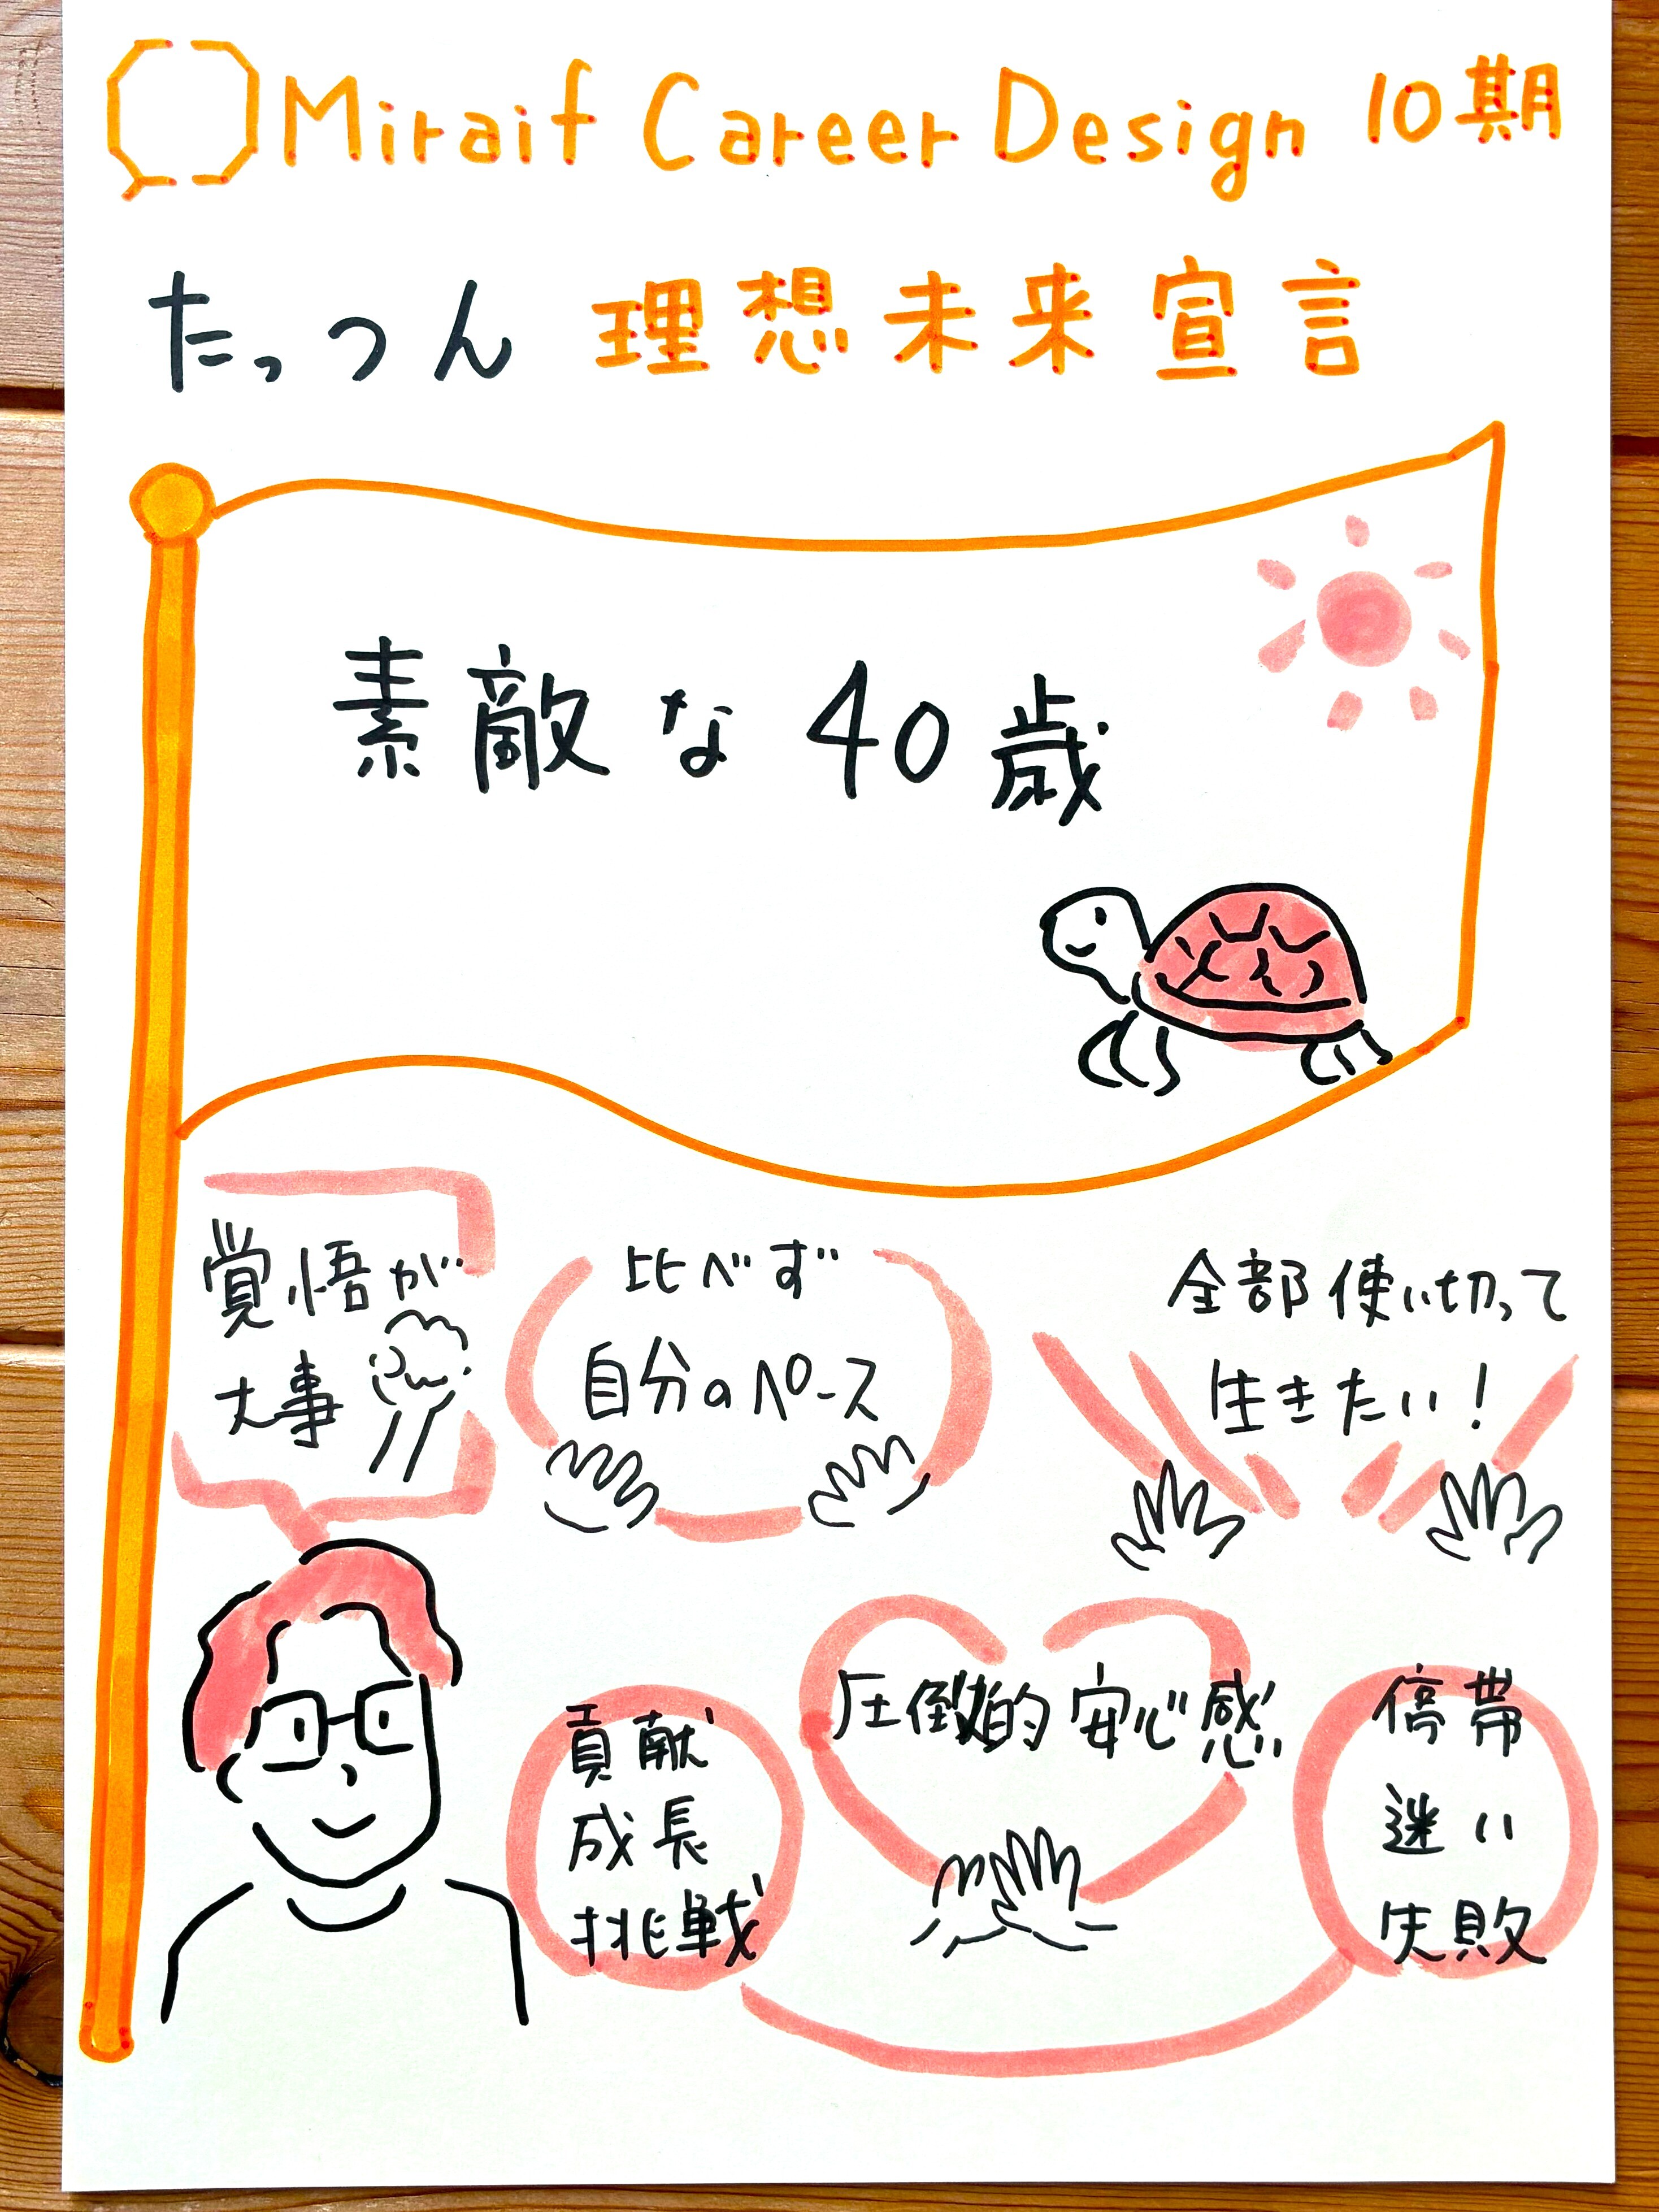 Miraif Career Design 10期
たっつん 理想未来宣言
素敵な40歳
覚悟が
大事
比べず
自分のペース
全部使い切って
生きたい!
貢献
成長
挑戦
圧倒的安心感
停滞
迷い
失敗